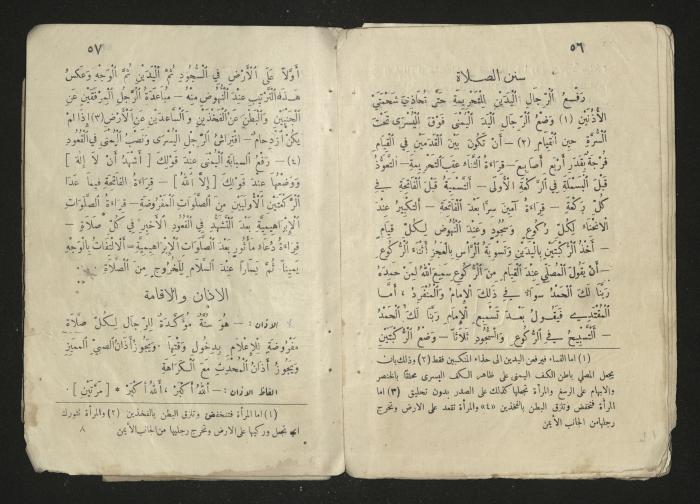 ٥٦
سنن الصلاة
رَفْعُ الرِّجَالِ الْيَدَيْنِ لِلتَّحْرِيمَةِ حَتَّى تُحَاذِيَ شَحْمَتَيِ
الْأُذُنَيْنِ (١) وَضْعُ الرِّجَالِ الْيَدَ الْيُمْنَى فَوْقَ الْيُسْرَى تَحْتَ
السُّرَّةِ حِينَ الْقِيَامِ (٢) – أَنْ تَكُونَ بَيْنَ الْقَدَمَيْنِ فِي الْقِيَامِ
فُرْجَةٌ بِقَدَرِ أَرْبَعِ أَصَابِعَ – قِرَاءَةُ الثَّنَاءِ عَقِبَ التَّحْرِيمَةِ – التَّعَوُّذُ
قَبْلَ الْبَسْمَلَةِ فِي الرَّكْعَةِ الْأُولَى – التَّسْمِيَةُ قَبْلَ الْفَاتِحَةِ فِي
كُلِّ رَكْعَةٍ – قِرَاءَةُ آمِينَ سِرًّا بَعْدَ الْفَاتِحَةِ – التَّكْبِيرُ عِنْدَ
الِانْحِنَاءِ لِكُلِّ رُكُوعٍ وَسُجُودٍ وَعِنْدَ النُّهُوضِ لِكُلِّ قِيَامٍ
– أَخْذُ الرُّكْبَتَيْنِ بِالْيَدَيْنِ وَتَسْوِيَةُ الرَّأْسِ بِالْعَجُزِ أَثْنَاءَ الرُّكُوعِ
– أَنْ يَقُولَ الْمُصَلِّي عِنْدَ الْقِيَامِ مِنَ الرُّكُوعِ سَمِعَ اللهُ لِمَنْ حَمِدَهُ
رَبَّنَا لَكَ الْحَمْدُ سَوَاءٌ فِي ذَلِكَ الْإِمَامُ وَالْمُنْفَرِدُ ، أَمَّا
الْمُقْتَدِي فَيَقُولُ بَعْدَ تَسْمِيعِ الْإِمَامِ رَبَّنَا لَكَ الْحَمْدُ
– التَّسْبِيحُ فِي الرُّكُوعِ وَالسُّجُودِ ثَلَاثًا – وَضْعُ الرُّكْبَتَيْنِ
(١) اما النساء فيرفعن اليدين الى حذاء المنكبين فقط (٢) وذلك بان
يجعل المصلي باطن الكف اليمنى على ظاهر الكف اليسرى محلقا بالخنصر
والابهام على الرسغ والمرأة تجعلها كذلك على الصدر بدون تحليق (٣) اما
المرأة فتخفض وتلزق البطن بالفخذين «٤» والمرأة تقعد على الارض وتخرج
رجليها من الجانب الأيمن
٥٧
أَوَّلاً عَلَى الْأَرْضِ فِي السُّجُودِ ثُمَّ الْيَدَيْنِ ثُمَّ الْوَجْهِ وَعَكْسُ
هَذَا التَّرْتِيبِ عِنْدَ النُّهُوضِ مِنْهُ – مُبَاعَدَةُ الرَّجُلِ الْمِرْفَقَيْنِ عَنِ
الْجَنْبَيْنِ وَالْبَطْنِ عَنِ الْفَخِذَيْنِ وَالسَّاعِدَيْنِ عَنِ الْأَرْضِ (٣) إِذَا لَمْ
يَكُنْ ازْدِحَامٌ – افْتِرَاشُ الرَّجُلِ الْيُسْرَى وَنَصْبُ الْيُمْنَى فِي الْقُعُودِ
(٤) – رَفْعُ السَّبَابَةِ الْيُمْنَى عِنْدَ قَوْلِكَ [ أَشْهَدُ أَنْ لَا إِلَهَ ]
وَوَضْعُهَا عِنْدَ قَوْلِكَ [ إِلَّا اللهُ ] – قِرَاءَةُ الْفَاتِحَةِ فِيمَا عَدَا
الرَّكْعَتَيْنِ الْأُولَيَيْنِ مِنَ الصَّلَوَاتِ الْمَفْرُوضَةِ – قِرَاءَةُ الصَّلَوَاتِ
الْإِبْرَاهِيمِيَّةِ بَعْدَ التَّشَهُّدِ فِي الْقُعُودِ الْأَخِيرِ فِي كُلِّ صَلَاةٍ –
قِرَاءَةُ دُعَاءٍ مَأْثُورٍ بَعْدَ الصَّلَوَاتِ الْإِبْرَاهِيمِيَّةِ – الِالْتِفَاتُ بِالْوَجْهِ
يَمِينًا ثُمَّ يَسَارًا عِنْدَ السَّلَامِ لِلْخُرُوجِ مِنَ الصَّلَاةِ
الأذان والاقامة
الاذان : – هُوَ سُنَّةٌ مُؤَكَّدَةٌ لِلرِّجَالِ لِكُلِّ صَلَاةٍ
مَفْرُوضَةٍ لِلْإِعْلَامِ بِدُخُولِ وَقْتِهَا وَيَجُوزُ أَذَانُ الصَّبِيِّ الْمُمَيِّزِ
وَيَجُوزُ أَذَانُ الْمُحْدِثِ مَعَ الْكَرَاهَةِ
الفاظ الاذان : – اللهُ أَكْبَرُ ، اللهُ أَكْبَرُ * [ مَرَّتَيْنِ ] .
(١) اما المرأة فتنخفض وتلزق البطن بالفخذين (٢) والمرأة تتورك
اي تجعل وركيها على الارض وتخرج رجليها من الجانب الأيمن
٨